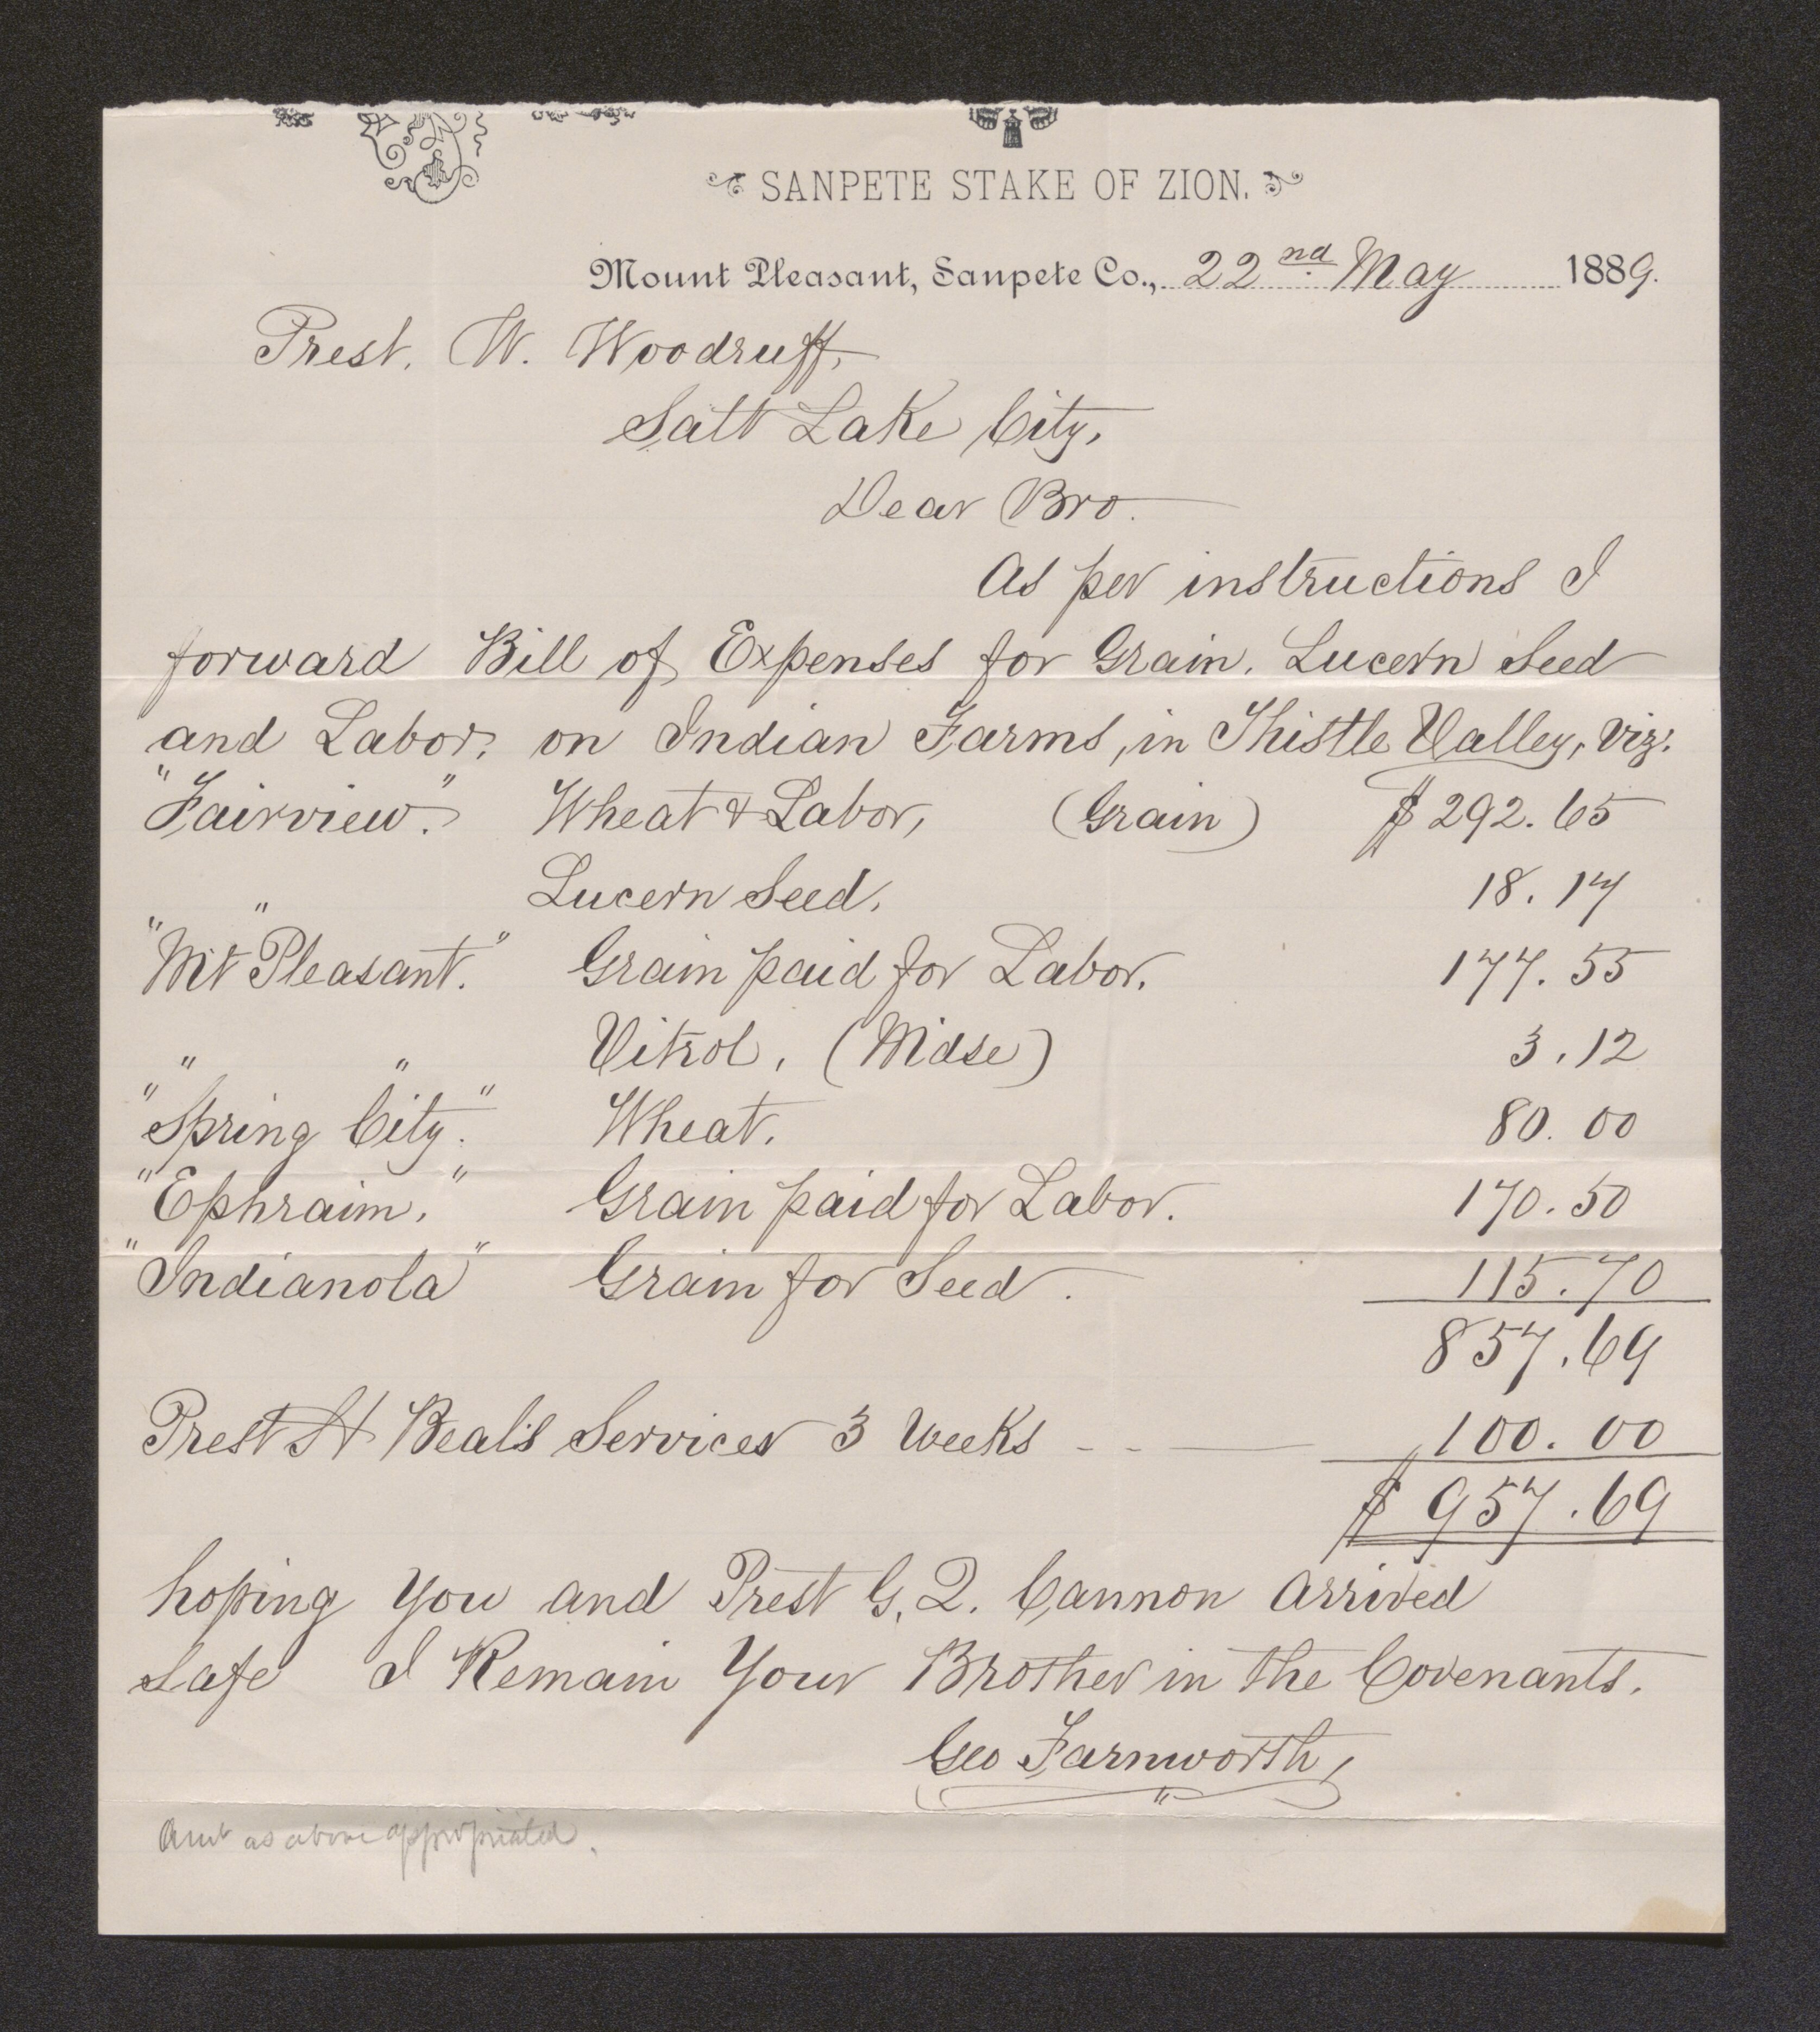 SANPETE STAKE OF ZION.
Mount Pleasant, Sanpete Co., 22nd May 1889.
Prest. W. Woodruff,
Salt Lake City,
Dear Bro.
As per instructions I
forward Bill of Expenses for Grain. Lucern Seed
and Labor, on Indian Farms, in Thistle Valley, Viz.
"Fairview." Wheat & Labor, (Grain) $292.65
" Lucern Seed. 18.17
"Mt Pleasant." Grain paid for Labor. 177.55
" " Vitrol. (Mdse) 3.12
"Spring City." Wheat. 80.00
"Ephraim." Grain paid for Labor. 170.50
"Indianola" Grain for Seed. 115.70
857.69
Prest H Beal's Services 3 Weeks - - — 100.00
$957.69
hoping You and Prest G. Q. Cannon Arrived
safe I Remain Your Brother in the Covenants.
Geo Farnworth,
Amt as above appropriated.